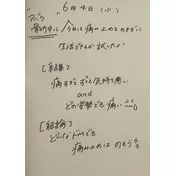 6月4日(水)
今日は痛み止めをのまずに
生活できるか試したよ!
[結果]
痛すぎてずっと気持ち悪い
and
どの姿勢でも痛い
[結論]
どんなトキでも
痛み止めはのもう